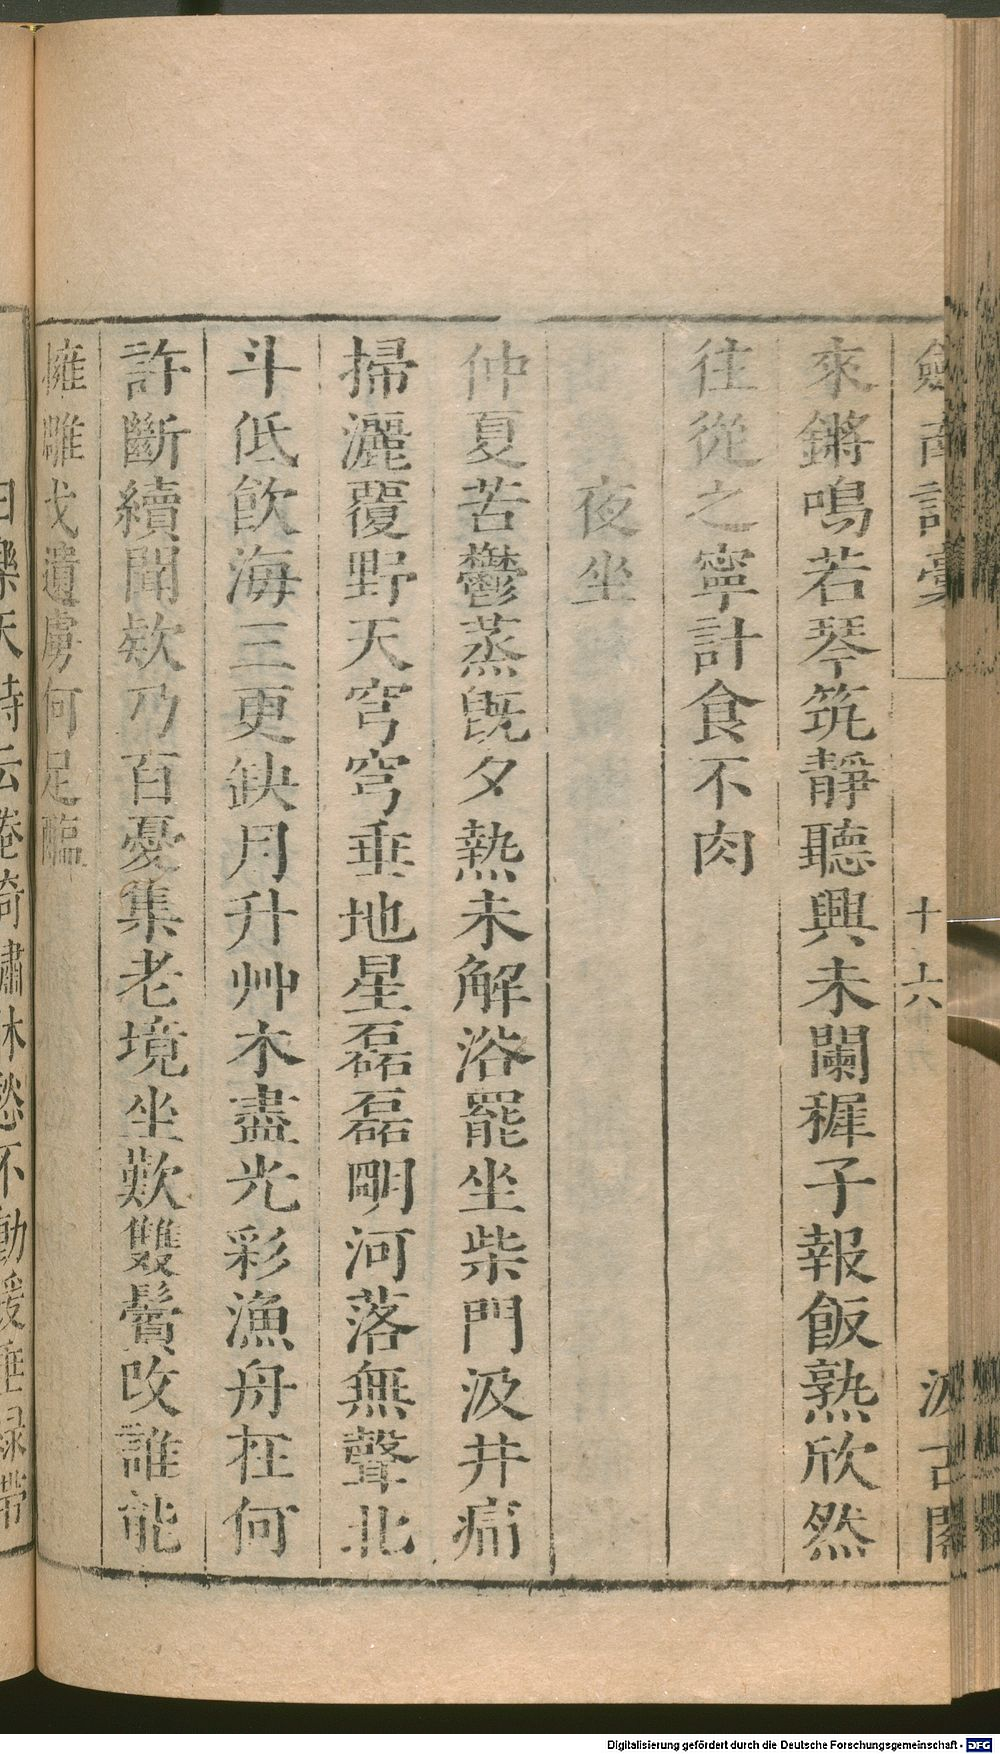 劍南詩藁
十六
汲古閣
來鏘鳴若琴筑靜聽興未闌穉子報飯熟欣然
往從之寧計食不肉
夜坐
仲夏苦鬱蒸旣夕熱未解浴罷坐柴門汲井痛
掃灑覆野天穹穹垂地星磊磊明河落無聲北
斗低飮海三更缺月升艸木盡光彩漁舟在何
許斷續聞欸乃百憂集老境坐歎雙鬢改誰能
擁雕戈遺虜何足醢
白樂天詩云倦倚繡牀愁不動緩垂綠帶
Digitalisierung gefördert durch die Deutsche Forschungsgemeinschaft - DFG